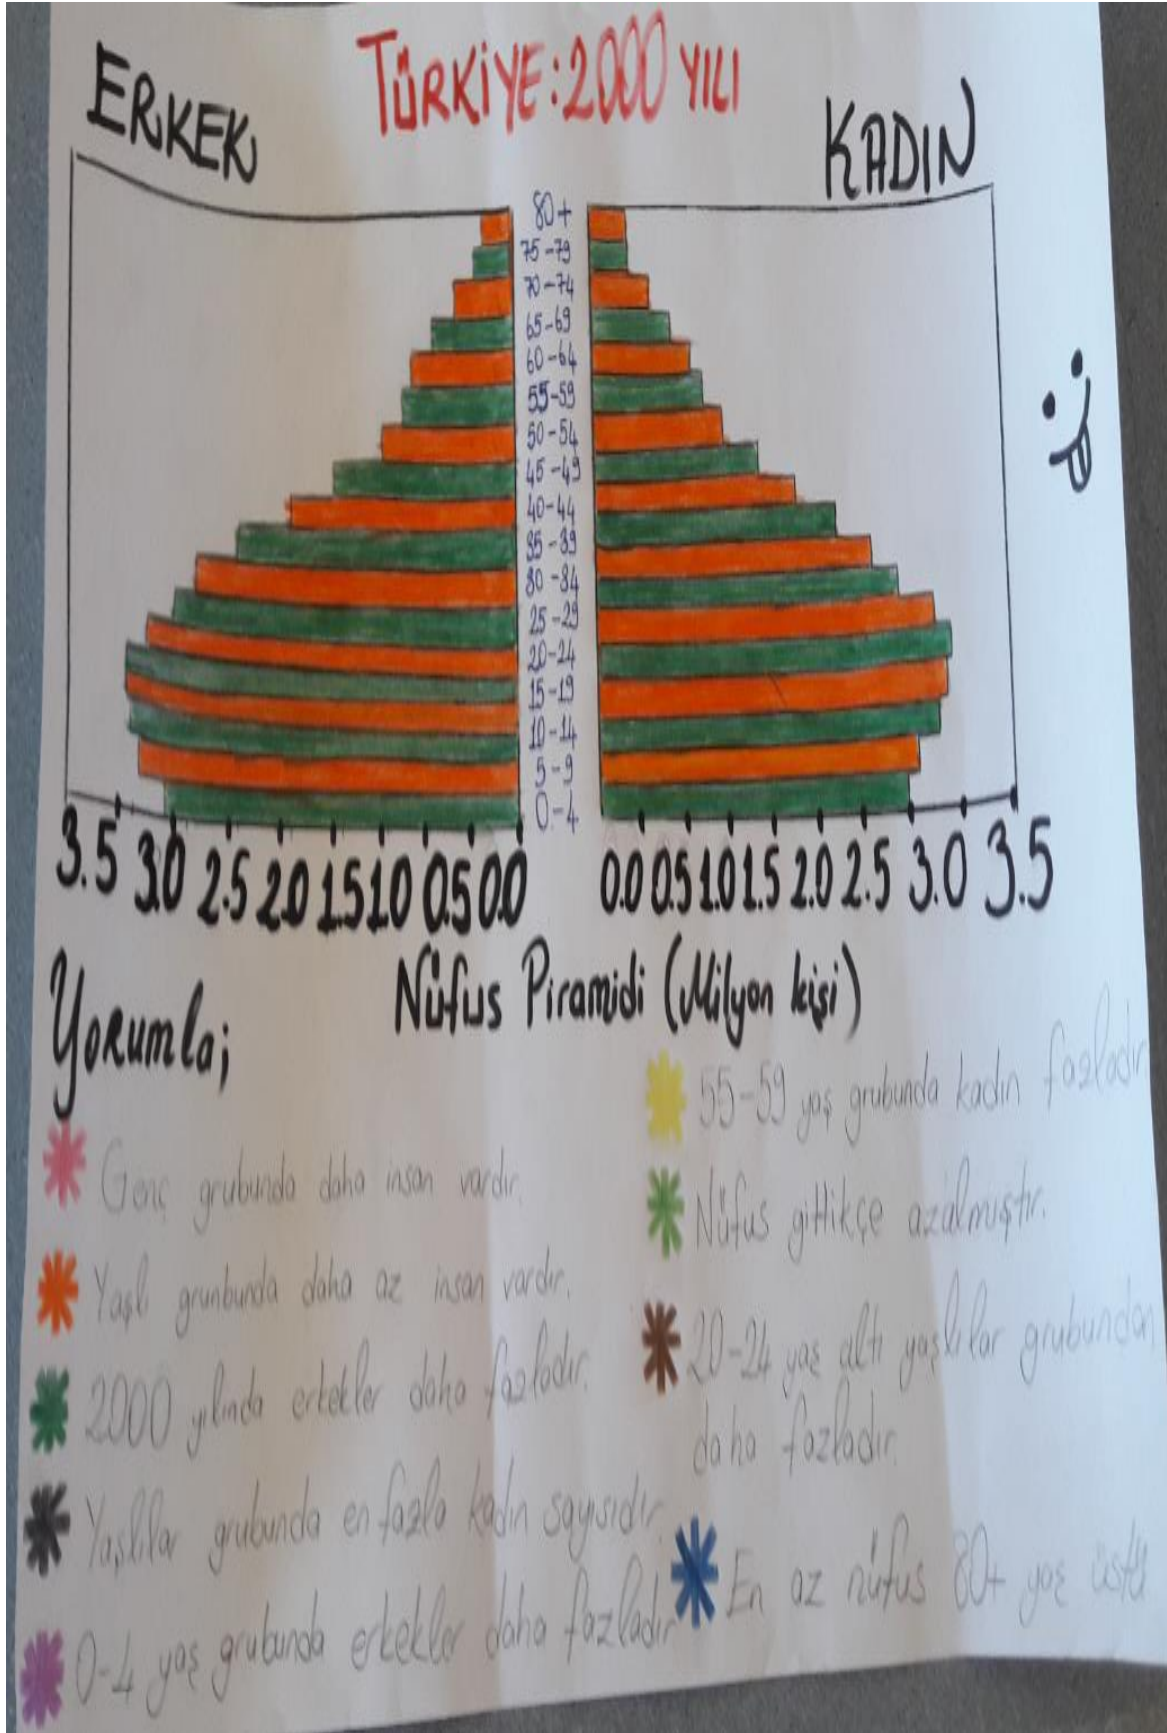 TÜRKİYE: 2000 YILI
ERKEK
KADIN
80+
75-79
70-74
65-69
60-64
55-59
50-54
45-49
40-44
35-39
30-34
25-29
20-24
15-19
10-14
5-9
0-4
3.5 3.0 2.5 2.0 1.5 1.0 0.5 0.0
0.0 0.5 1.0 1.5 2.0 2.5 3.0 3.5
Nüfus Piramidi (Milyon kişi)
Yorumla;
Genç grubunda daha insan vardır.
Yaşlı grunbunda daha az insan vardır.
2000 yılında erkekler daha fazladır.
Yaşlılar grubunda en fazla kadın sayısıdır.
0-4 yaş grubunda erkekler daha fazladır
55-59 yaş grubunda kadın fazladır.
Nüfus gittikçe azalmıştır.
20-24 yaş altı yaşlılar grubundan
daha fazladır.
En az nüfus 80+ yaş üstü